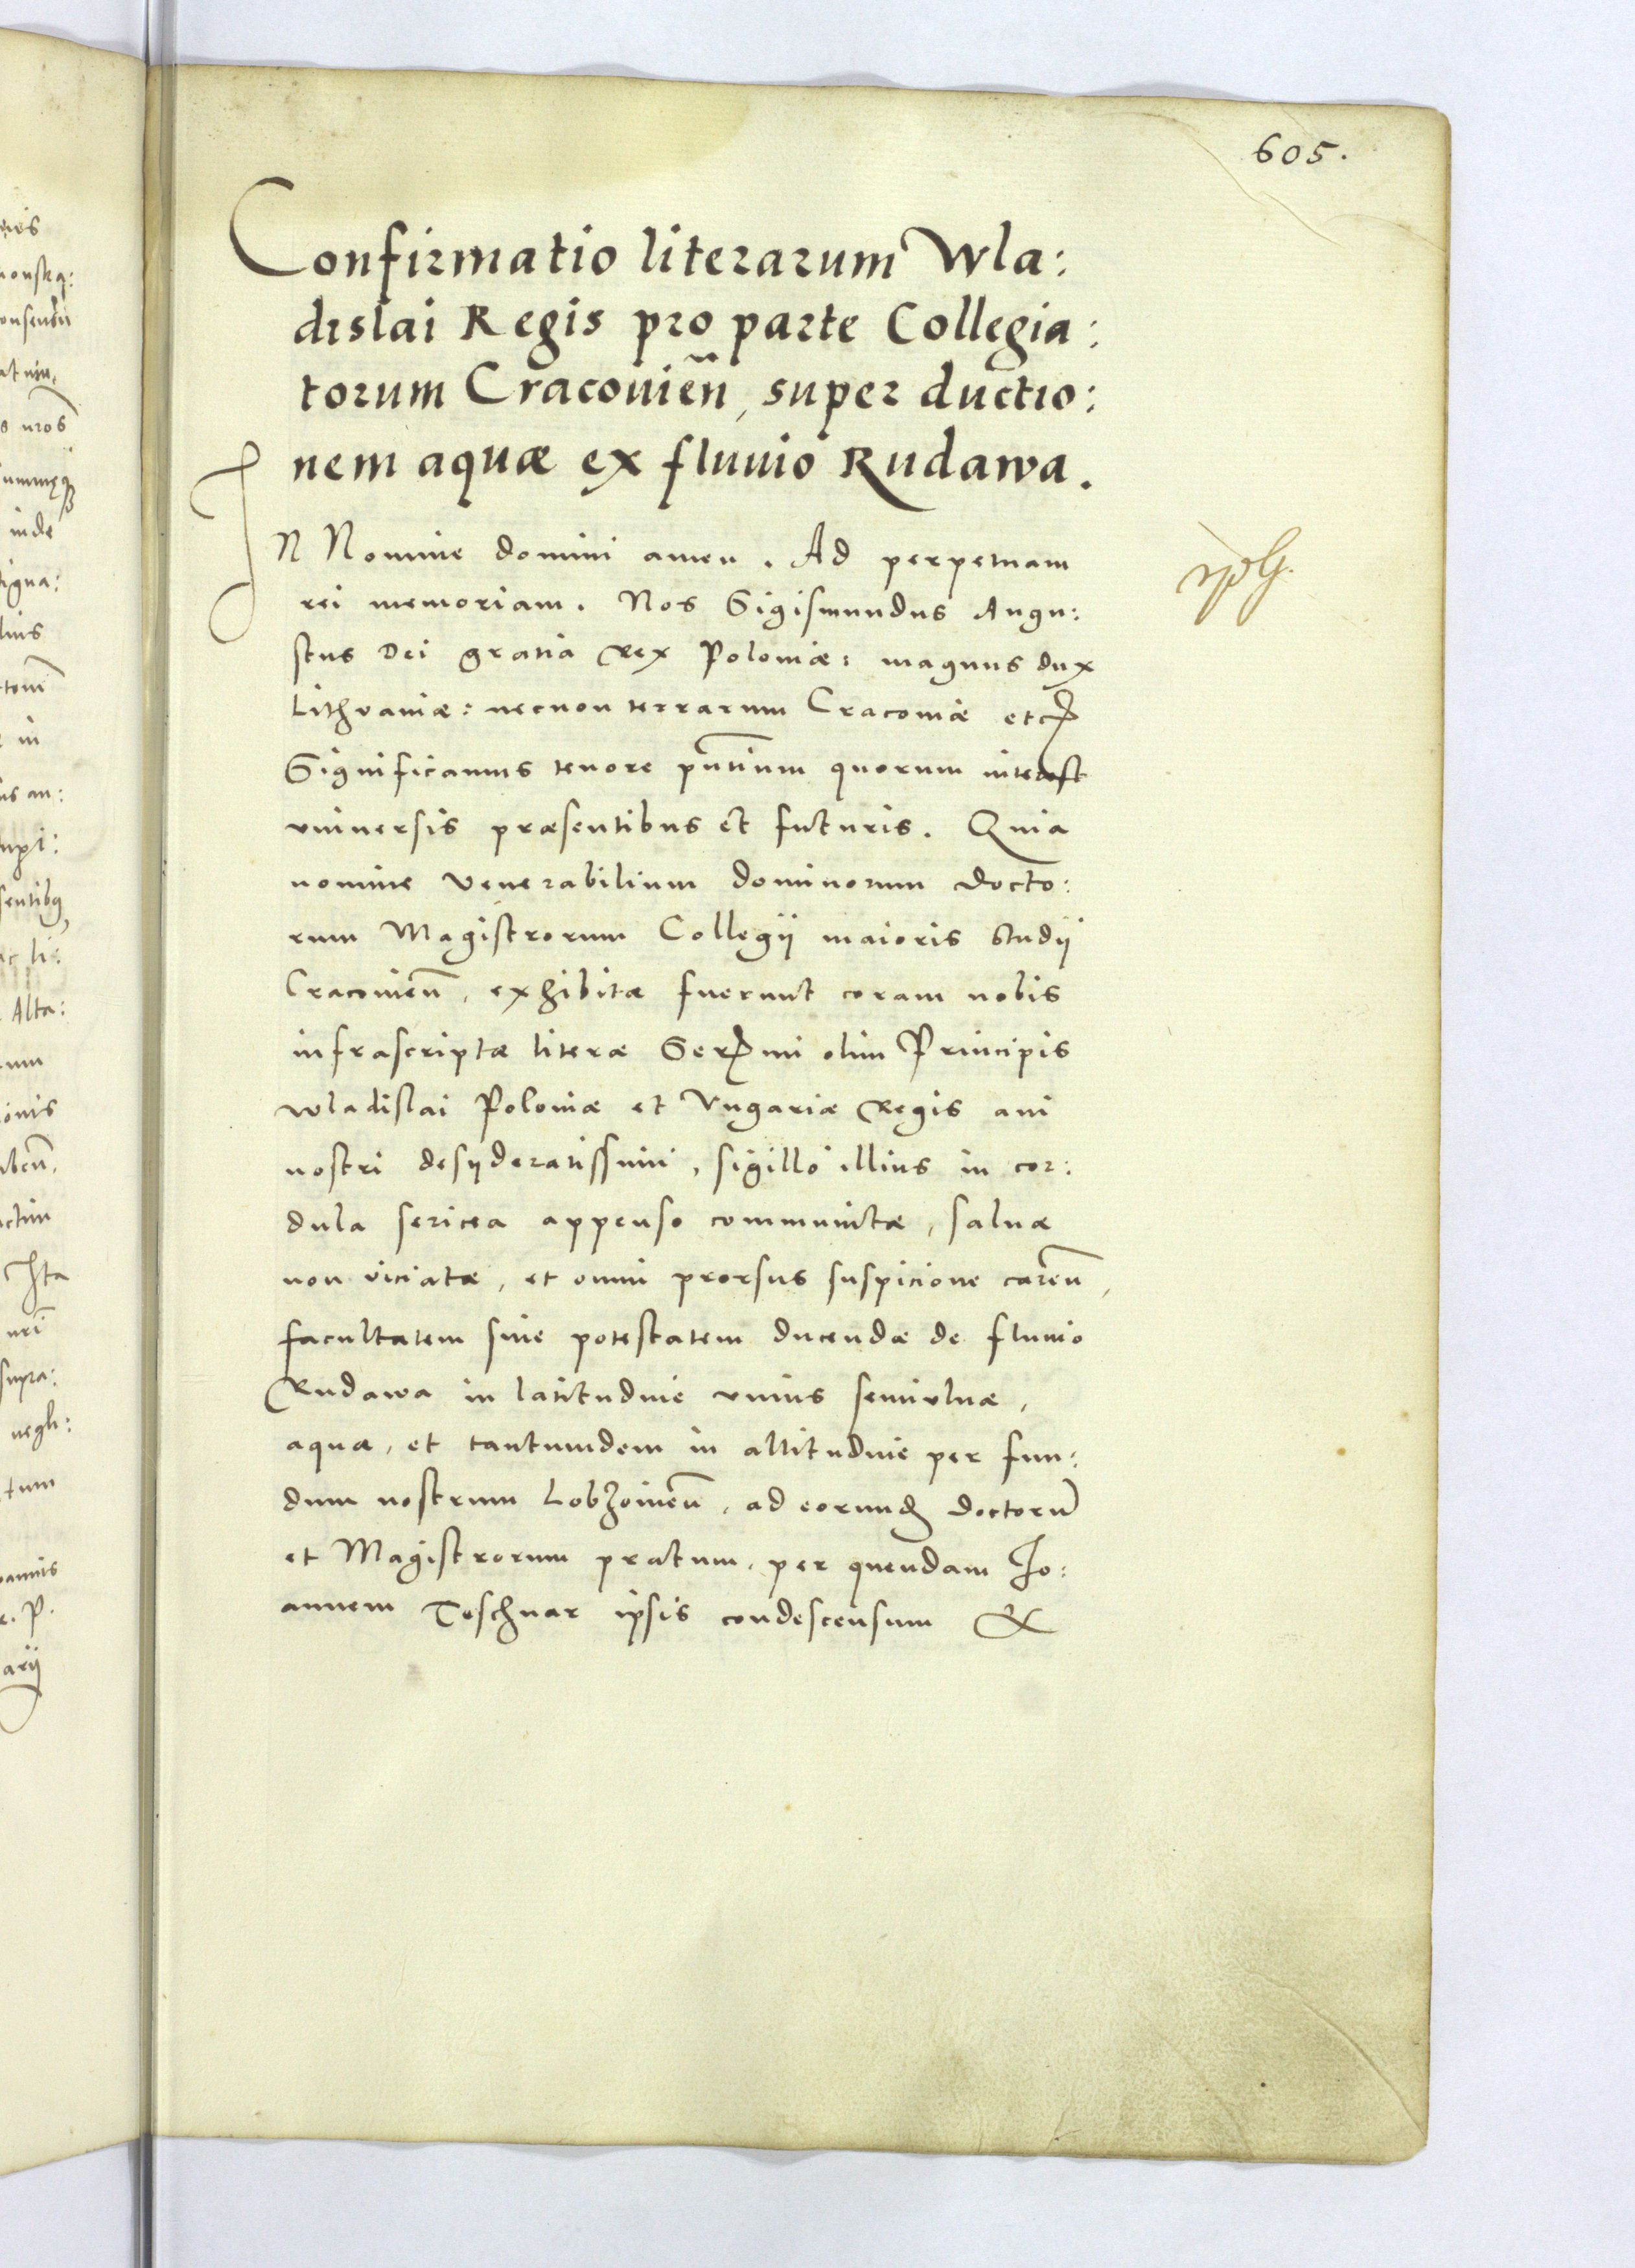 605.
Confirmatio literarum Wla:
dislai Regis pro parte Collegia:
torum Cracovien̄, super ductio:
nem aquæ ex fluuio Rudawa.
IN Nomine domini amen. Ad perpetuam
rei memoriam. Nos Sigismundus Augu:
stus Dei gratia Rex Poloniæ: magnus dux
Lithvaniæ: necnon terrarum Cracoviæ etc
Significamus tenore pn̄tium quorum interest
vniuersis præsentibus et futuris. Quia
nomine venerabilium dominorum docto:
rum Magistrorum Collegii maioris studij
Cracovien̄, exhibitæ fuerunt coram nobis
infrascriptæ literæ Ser mi olim Principis
wladislai Poloniæ et Vngariæ Regis aui
nostri desyderatissimi, sigillo illius in cor:
dula sericea appenso communitæ, saluæ
non viciatæ, et omni prorsus suspicione caren̄,
facultatem siue potestatem ducendæ de fluuio
Rudawa in latitudine vnius semivlnæ,
aquæ, et tantumdem in altitudine per fun:
dum nostrum Lobzovien̄, ad eorund doctorū
et Magistrorum pratum, per quendam Jo:
annem Teschnar ipsis condescensum &